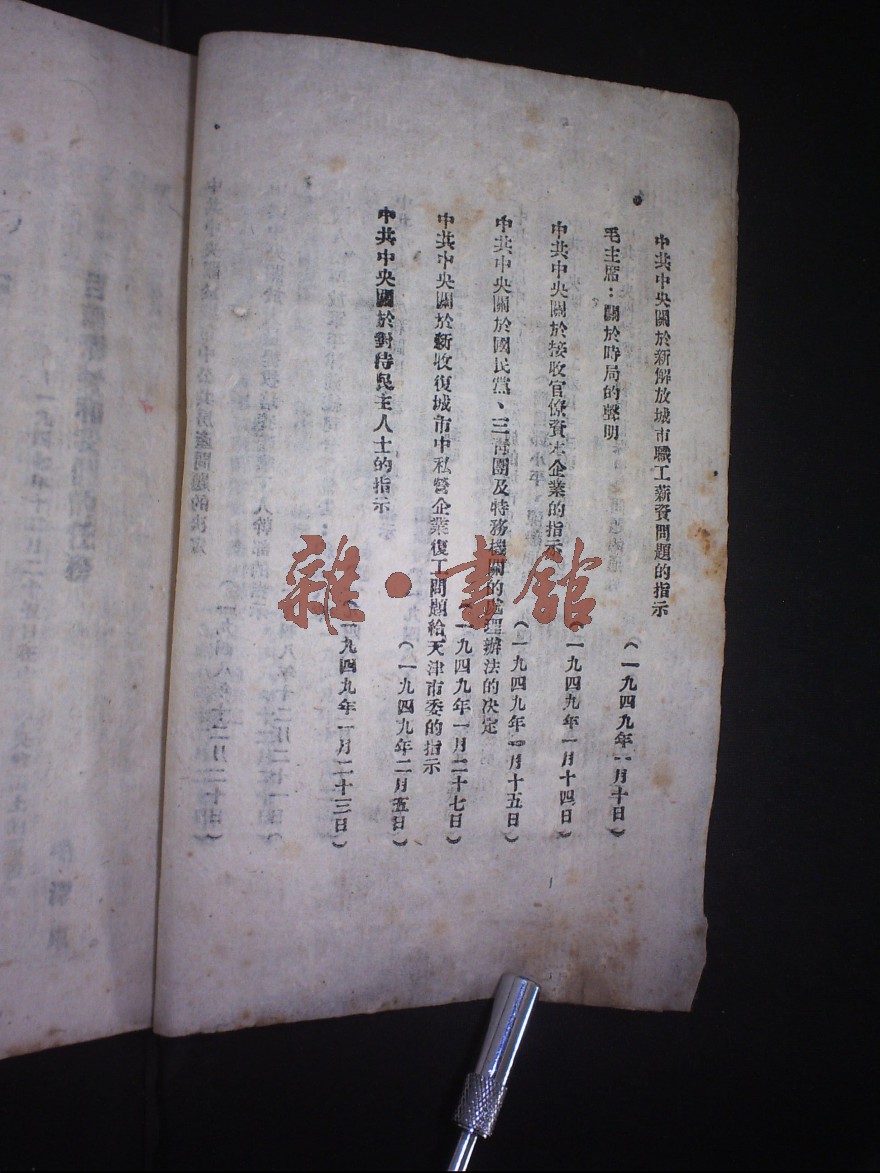 中共中央關於新解放城市職工薪資問題的指示
(一九四九年一月十日)
毛主席：關於時局的聲明
(一九四九年一月十四日)
中共中央關於接收官僚資本企業的指示
(一九四九年一月十五日)
中共中央關於國民黨、三青團及特務機關的處理辦法的决定
(一九四九年一月二十七日)
中共中央關於新收復城市中私營企業復工問題給天津市委的指示
(一九四九年二月五日)
中共中央關於對待民主人士的指示
(一九四九年一月二十三日)
雜·書館